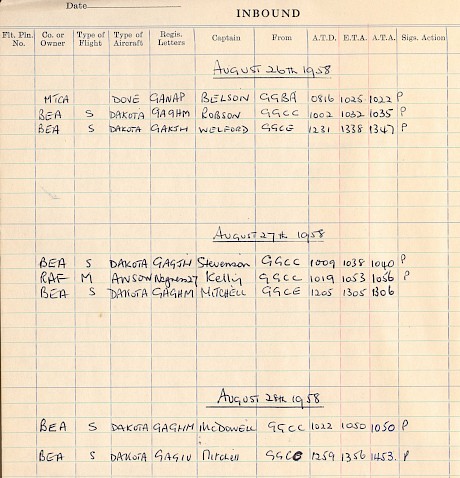 Date
INBOUND
Flt. Pln. No. Co. or Owner Type of Flight Type of Aircraft Regis. Letters Captain From A.T.D. E.T.A. A.T.A. Sigs. Action
AUGUST 26TH 1958
MTCA DOVE GANAP BELSON GGBA 0816 1025 1022 P
BEA S DAKOTA GAGHM ROBSON GGCC 1002 1032 1035 P
BEA S DAKOTA WELFORD GGCE 1231 1338 1347 P
AUGUST 27TH 1958
BEA S DAKOTA GAGJW Stevenson GGCC 1009 1038 1040 P
RAF M ANSON Kelly GGCC 1019 1053 1056 P
BEA S DAKOTA GAGHM MITCHELL GGCE 1205 1305 1306
AUGUST 28TH 1958
BEA S DAKOTA GAGHM McDOWELL GGCC 1022 1050 1050 P
BEA S DAKOTA GAGIU Mitchell 1259 1356 1453. P